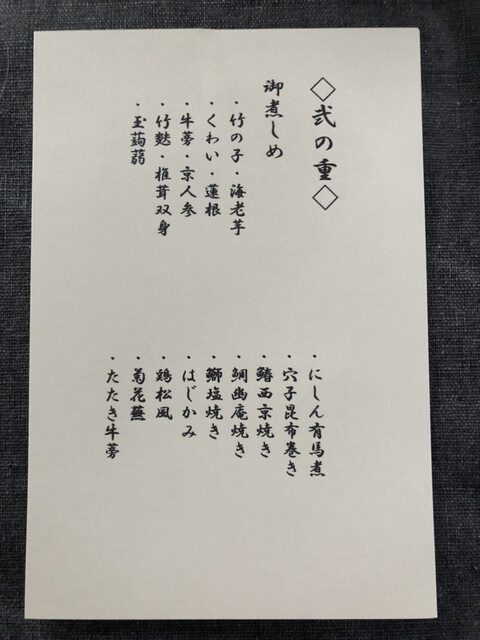 ◇弐の重◇
御煮しめ
・竹の子・海老芋
・くわい・蓮根
・牛蒡・京人参
・竹麩・椎茸双身
・玉蒟蒻
・にしん有馬煮
・穴子昆布巻き
・鰆西京焼き
・鯛幽庵焼き
・鰤塩焼き
・はじかみ
・鶏松風
・菊花蕪
・たたき牛蒡